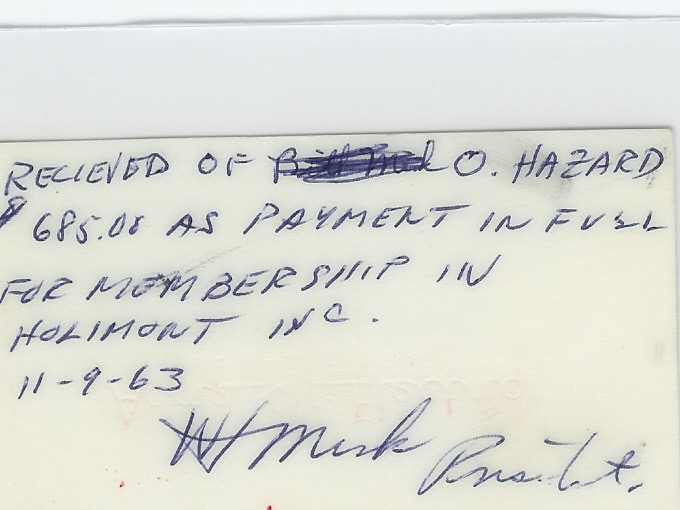 RECIEVED OF O. HAZARD
$685.00 AS PAYMENT IN FULL
FOR MEMBERSHIP IN
HOLIMONT INC.
11-9-63
President.